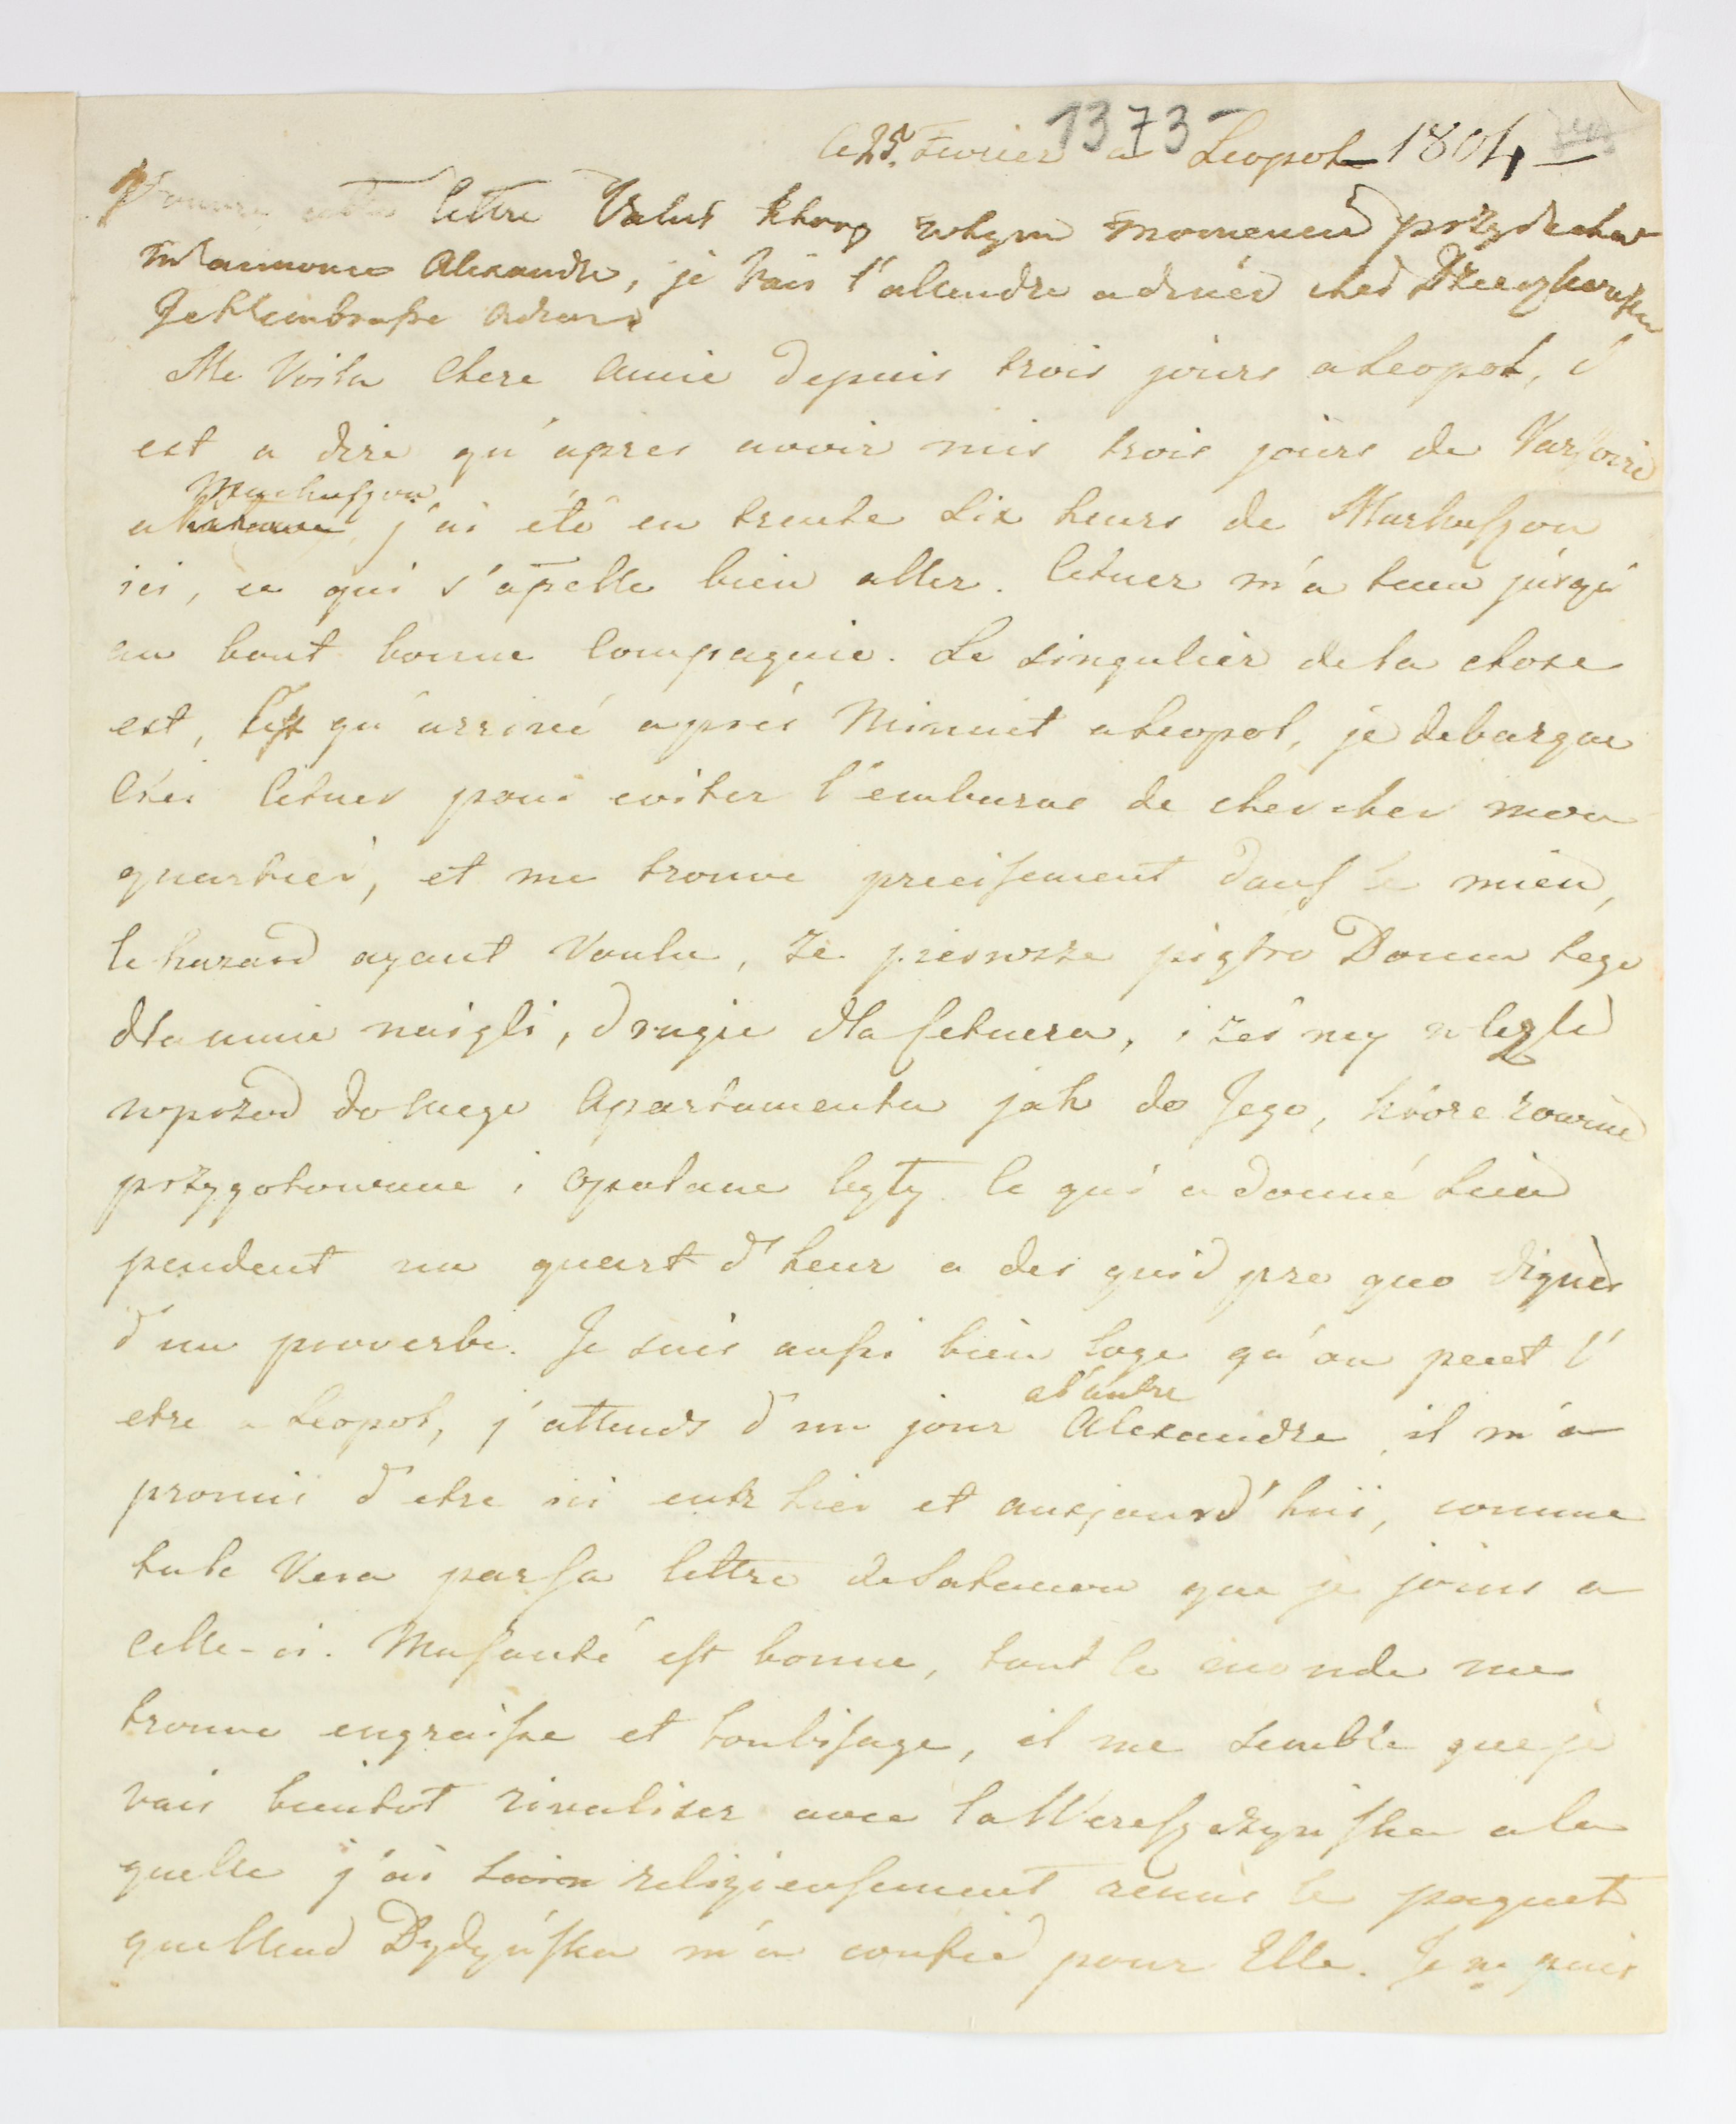 1373
Ce 25. Fevrier a Leopol 1804
cette lettre Valus Ktory w tym momencie przyjechał
m'annonce Alexandre, je vais l'attendre a diner ches
Je t'embrasse
Me Voila Chere Amie depuis trois jours a Leopol, c'
est a dire qu'apres avoir mis trois jours de Varsovie
Markuszow
a j'ai été en trente six heurs de Markuszow
ici, ce qui s'apelle bien aller. Cetner m'a tenu jusqu'
au bout bonne Compagnie. Le singulier de la chose
est, qu'arrivé aprés Minuit a Leopol, je debarque
Chés Cetner pour eviter l'embaras de chercher mon
quartier, et me trouve precisement dans le mien,
le hazard ayant Voulu, że pierwsze piętro Domu tego
dla mnie naięli, drugie dla Cetnera, i żeśmy wleźli
wprzod do mego Apartamentu jak do Jego, które rownie
przygotowane i opalane były. Ce qui a donné lieu
pendent un quart d'heur a des quid pro quo dignes
d'un proverbe. Je suis aussi bien logé qu'on peut l'
a l'autre
etre a Leopol, j'attends d'un jour Alexandre, il m'a
promis d'etre ici entre hier et aujourd'hui, comme
tu le Vera par sa lettre de que je joins a
Celle-ci. Ma santé est bonne, tout le monde me
trouve engraissé et , il me semble que je
vais bientot rivaliser avec la Wereszczyńska a la
quelle j'ai religieusement remis le paquet
que Mad Dydyńska m'a confié pour Elle. Je ne puis